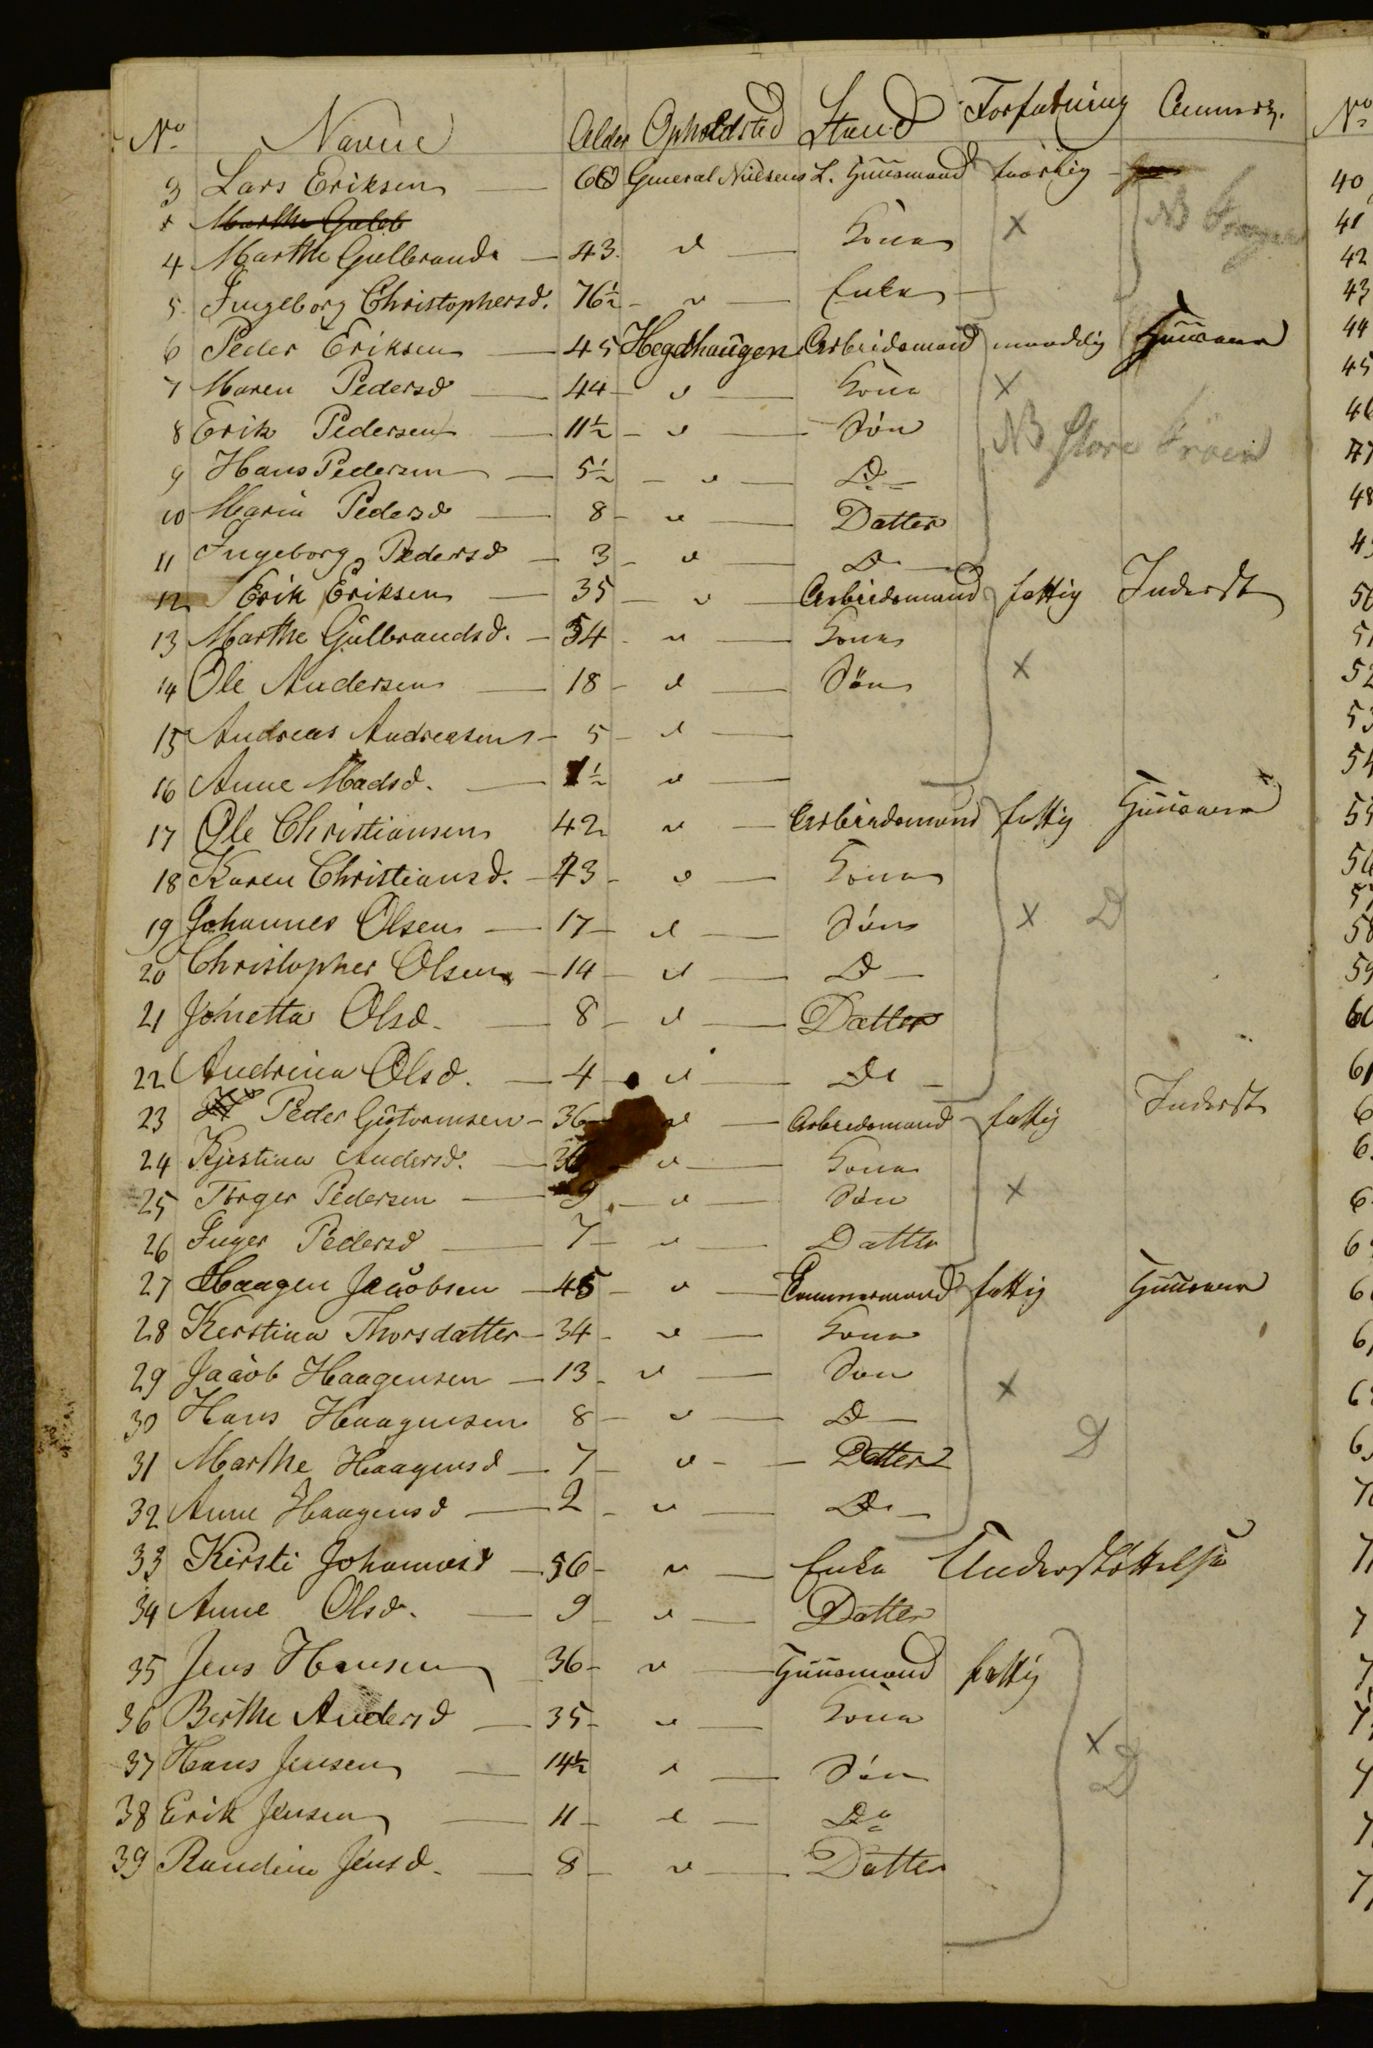 No Navne Alder Opholdsted Stand Forfatning Anmerk.
3 Lars Eriksen — 66 General Nielsens L. Huusmand
4 Marthe Gulbrands — 43 " — Kone x NB
5 Ingeborg Christophersd. 76½ - " — Enke —
6 Peder Eriksen — 45 Hegdhaugen Arbeidsmand maadelig Huuseier
7 Maren Pedersd — 44 - " — Kone x
8 Erik Pedersen — 11½ - " — Søn NB Store
9 Hans Pedersen — 5½ - " — Do
10 Maria Pedersd — 8 - " — Datter
11 Ingeborg Pedersd - 3 - " — Do
12 Erik Eriksen — 35 - " — Arbeidsmand fattig Inderst
13 Marthe Gulbrandsd. - 34 - " — Kone
14 Ole Andersen — 18 - " — Søn x
15 Andreas Andreasen - 5 - " —
16 Anne Madsd. — 1½ " —
17 Ole Christiansen 42 " — Arbeidsmand fattig Huuseier
18 Karen Christiansd. - 43 - " — Kone
19 Johannes Olsen — 17 - " — Søn x D
20 Christopher Olsen - 14 - " — Do
21 Jonetta Olsd. — 8 - " — Datter
22 Andrina Olsd. — 4 - " — Do
23 Peder Guttormsen - 36 " — Arbeidsmand fattig Inderst
24 Kjestina Andersd. — 36 - " — Kone
25 Torger Pedersen — 9 - " — Søn x
26 Inger Pedersd — 7 - " — Datter
27 Haagen Jacobsen - 45 - " — Tømmermand fattig Huuseier
28 Kerstina Thorsdatter - 34 - " — Kone
29 Jacob Haagensen — 13 - " — Søn x
30 Hans Haagensen 8 - " — Do D
31 Marthe Haagensd — 7 - " — Datter
32 Anne Haagensd — 2 - " — Do
33 Kirsti Johannesd — 56 - " — Enke Understøttelse
34 Anne Olsd. — 9 - " — Datter
35 Jens Hansen 36 - " — Huusmand fattig
36 Berthe Andersd — 35 - " — Kone
37 Hans Jensen — 14½ " — Søn x
38 Erik Jensen — 11 - " — Do D
39 Randine Jensd. — 8 - " — Datter
No
40
41
42
43
44
45
46
47
48